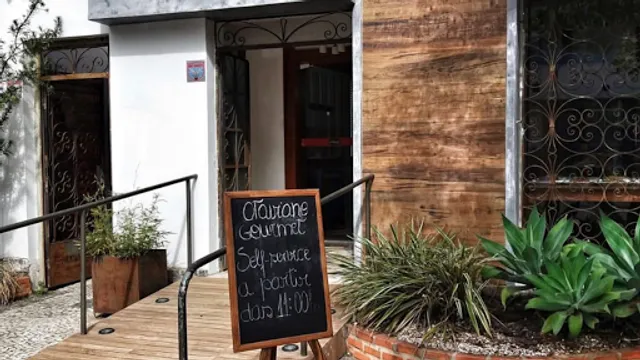 Otaviane
Gourmet
Self-service
a partir
das 11:00